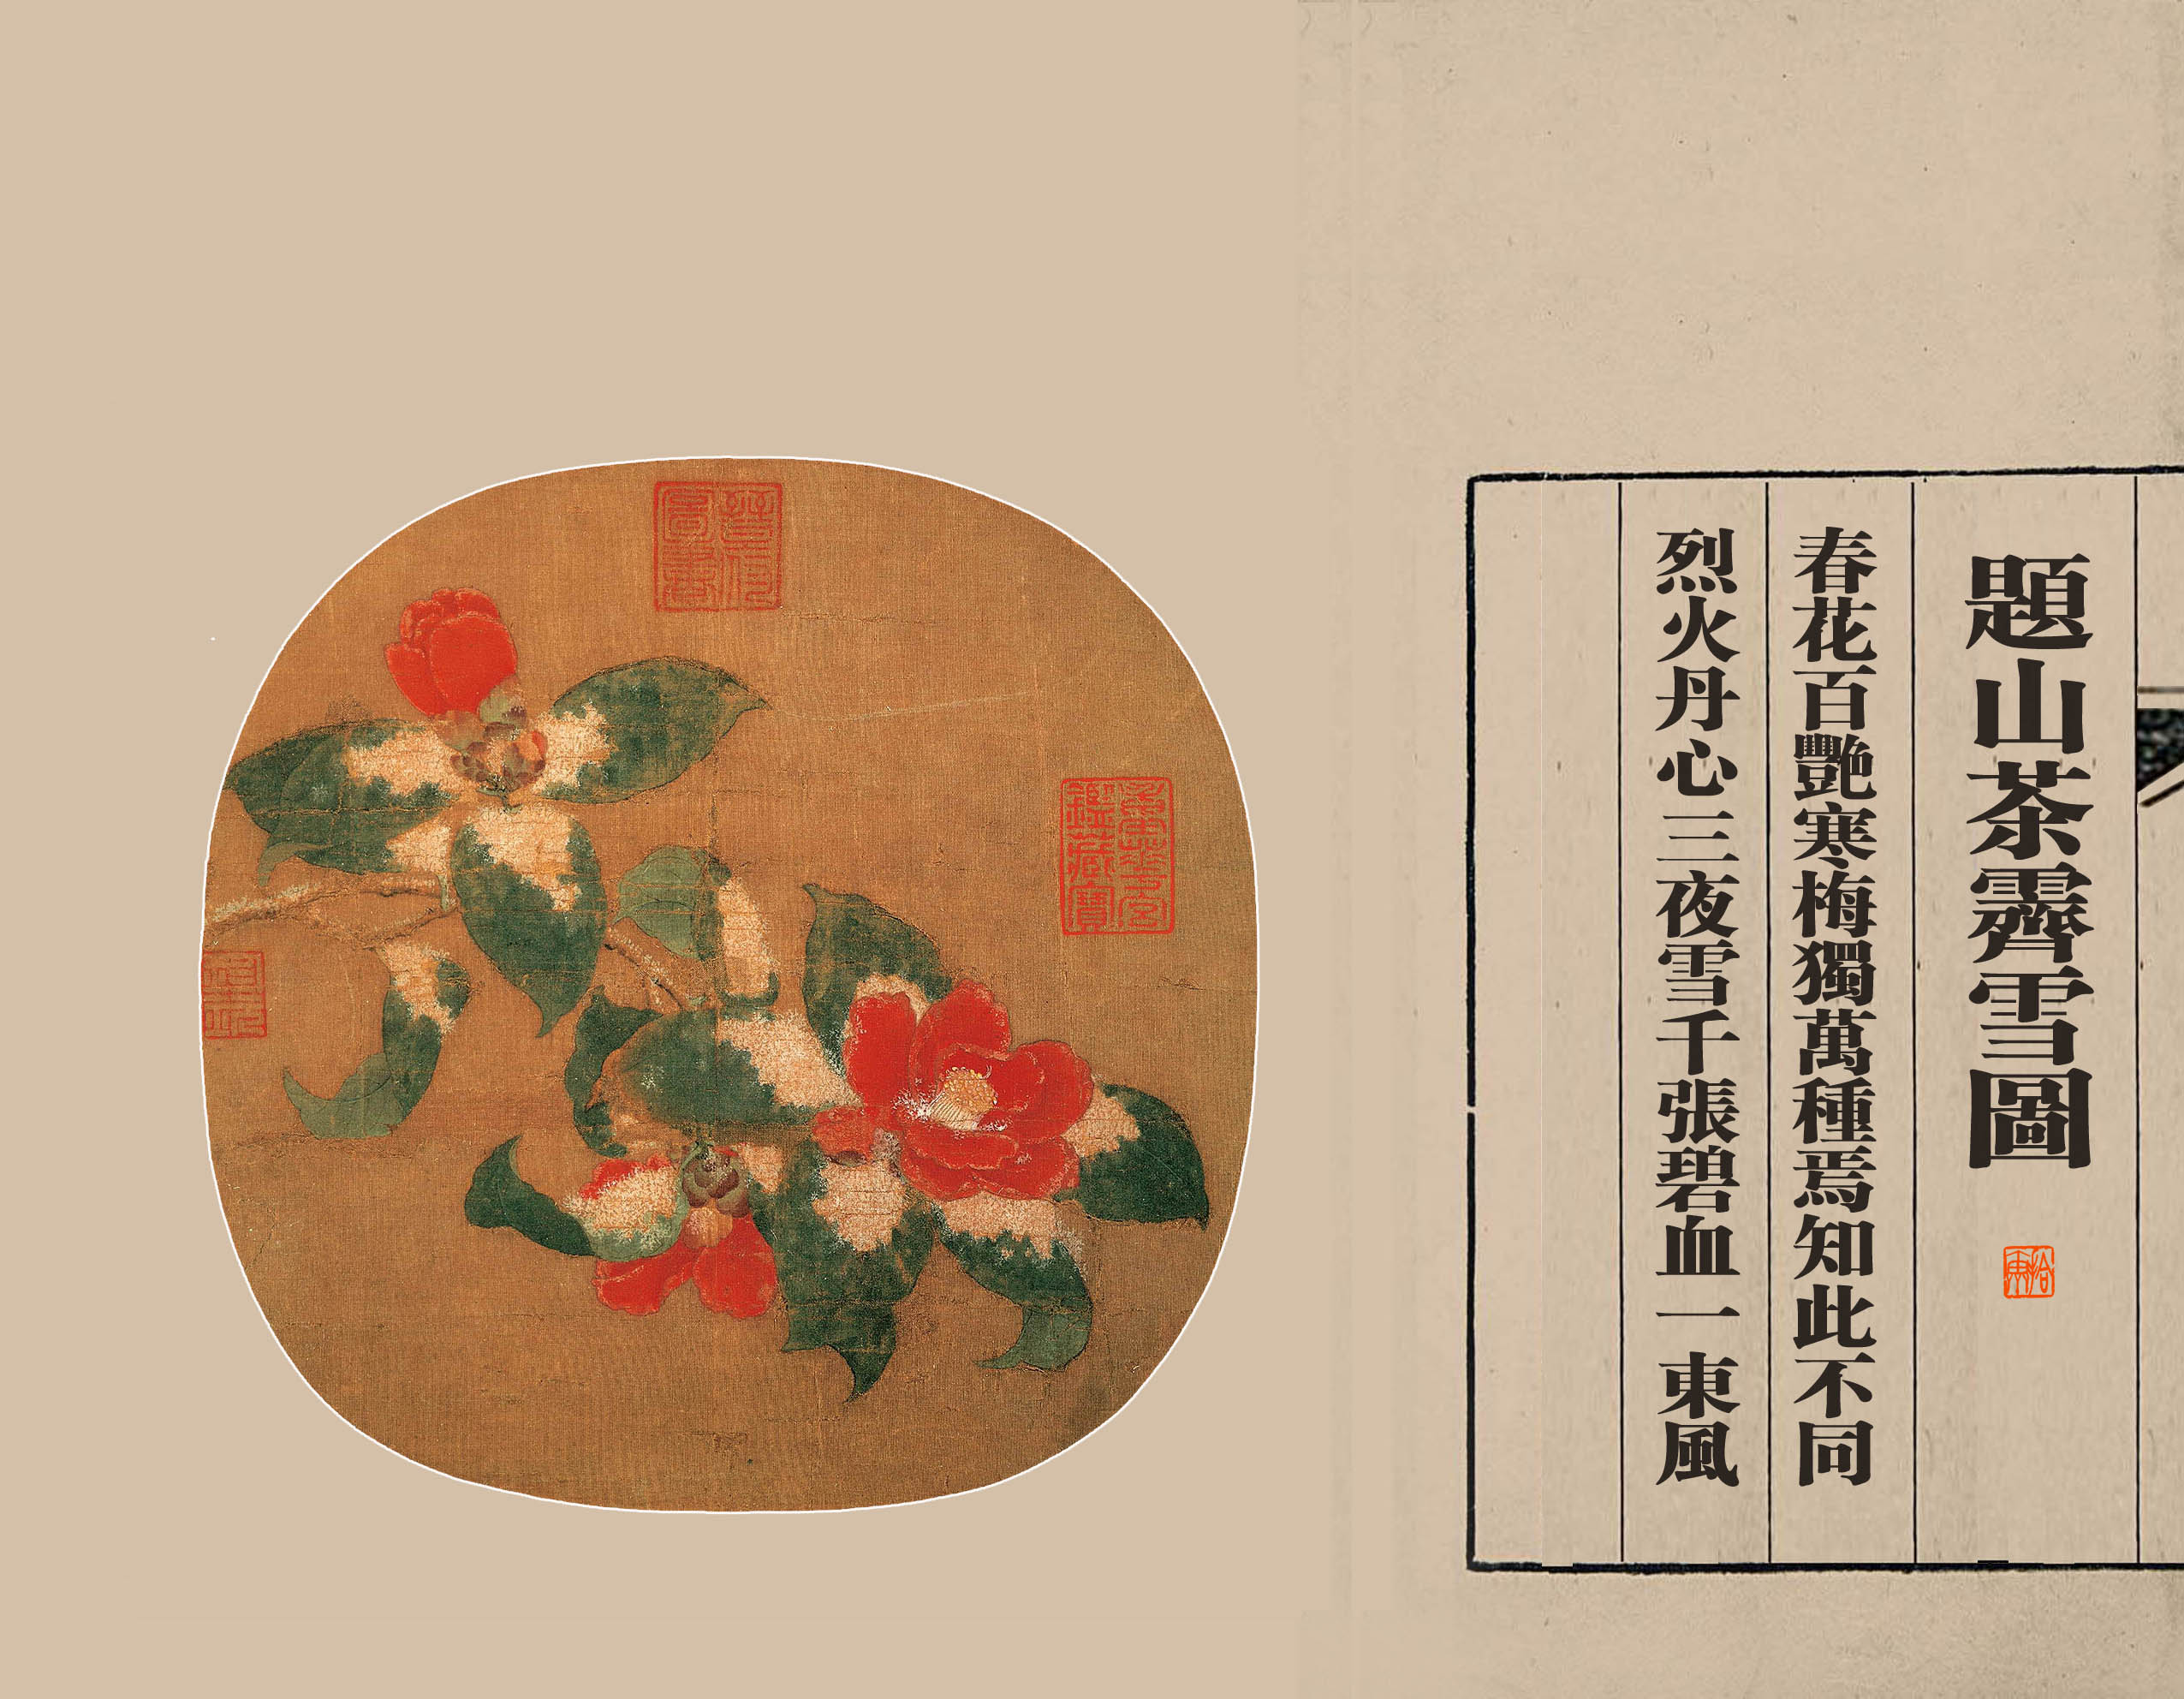 題山茶霽雪圖
春花百艷寒梅獨萬種焉知此不同
烈火丹心三夜雪千張碧血一東風